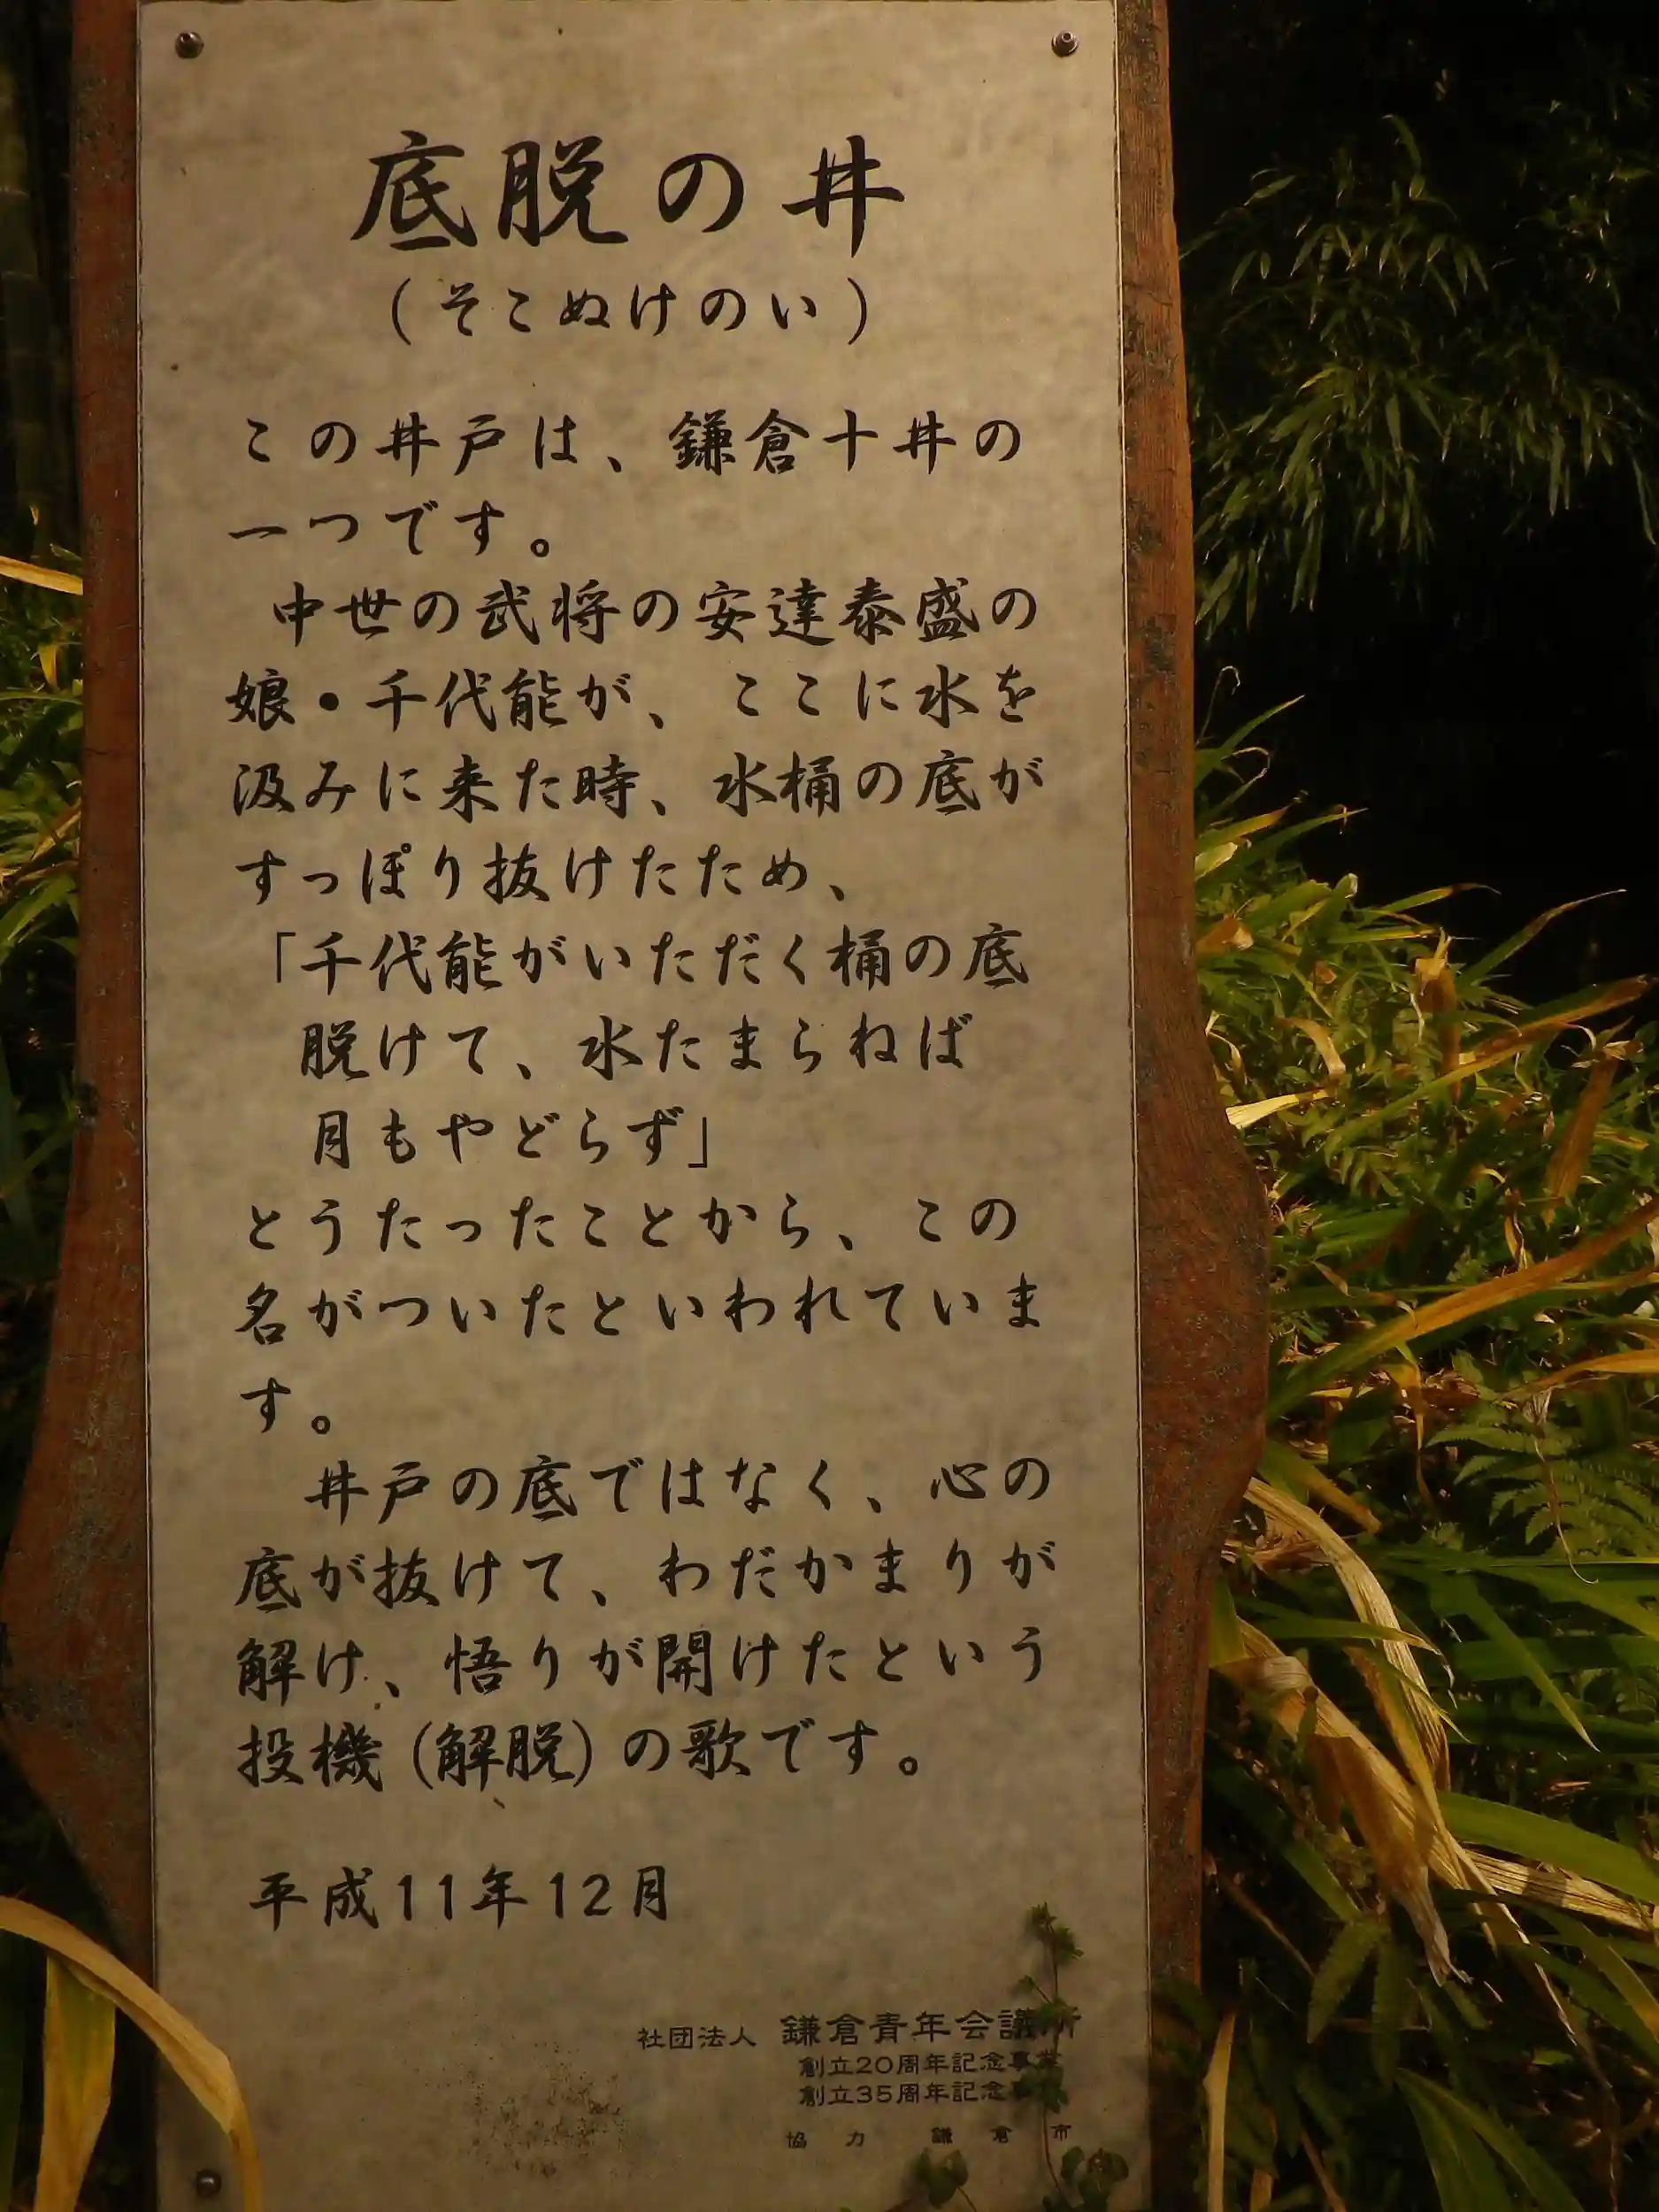 底脱の井
（そこぬけのい）
この井戸は、鎌倉十井の
一つです。
中世の武将の安達泰盛の
娘・千代能が、ここに水を
汲みに来た時、水桶の底が
すっぽり抜けたため、
「千代能がいただく桶の底
脱けて、水たまらねば
月もやどらず」
とうたったことから、この
名がついたといわれていま
す。
井戸の底ではなく、心の
底が抜けて、わだかまりが
解け、悟りが開けたという
投機（解脱）の歌です。
平成11年12月
社団法人 鎌倉青年会議所
創立20周年記念事業
創立35周年記念事業
協力 鎌倉市